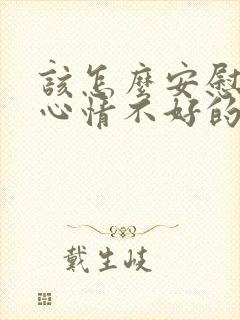 該怎麼安慰
心情不好的
戴生岐